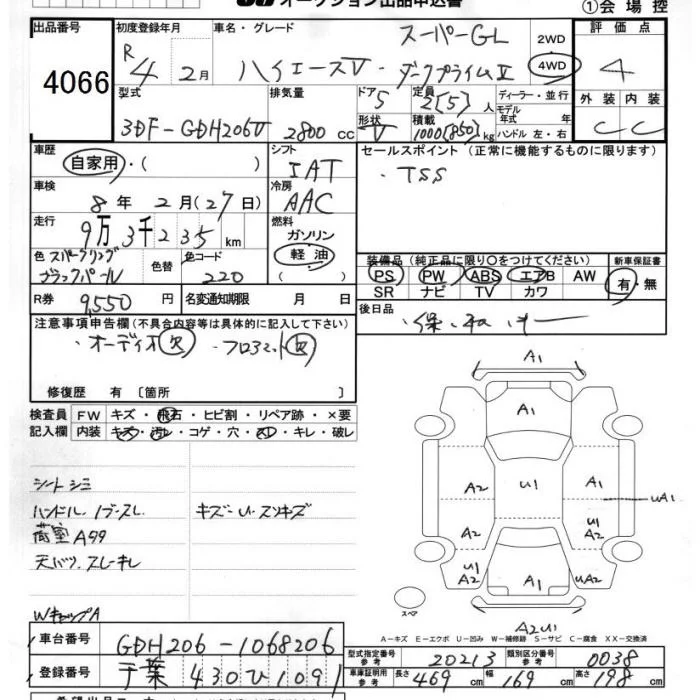 オークション出品申込書 ①会場控
出品番号 初度登録年月 車名・グレード スーパーGL 2WD 評価点
4066 R4 2月 ハイエースV・ダークプライムⅡ 4WD 4
型式 排気量 ドア 5 定員 2[5]人 ディーラー・並行 外装 内装
3DF-GDH206V 2800 cc 形状 V 積載 1000[850]kg モデル年式 年 ハンドル 左・右 C C
車歴 自家用・( ) シフト IAT セールスポイント(正常に機能するものに限ります)
車検 8年 2月(27日) 冷房 AAC ・TSS
走行 9万3千235km 燃料 ガソリン 軽油 ( )
色 スパークリングブラックパール 色替 色コード 220
装備品(純正品に限り○をつけてください) 新車保証書
PS PW ABS エアB AW 有・無
SR ナビ TV カワ
R券 9,550円 名変通知期限 月 日 後日品
注意事項申告欄(不具合内容等は具体的に記入して下さい)
・オーディオ欠
修復歴 有 〔箇所 〕
検査員記入欄 FW キズ・飛石・ヒビ割・リペア跡・×要
内装 キズ・汚レ・コゲ・穴・スレ・キレ・破レ
シートシミ
ハンドル
荷室A
天バリ、スレキレ
WキャップA
A1
A1
A2 U1 A1 UA1
A2 U1 A2
U1 A2 A1 UA2
スペア
A2U1
A-キズ E-エクボ U-凹み W-補修跡 S-サビ C-腐食 XX-交換済
車台番号 GDH206-1068206
型式指定番号 参考 20213 類別区分番号 参考 0038
登録番号 千葉430ひ1091
車庫証明用 参考 長さ 469cm 幅 169cm 高さ 198cm